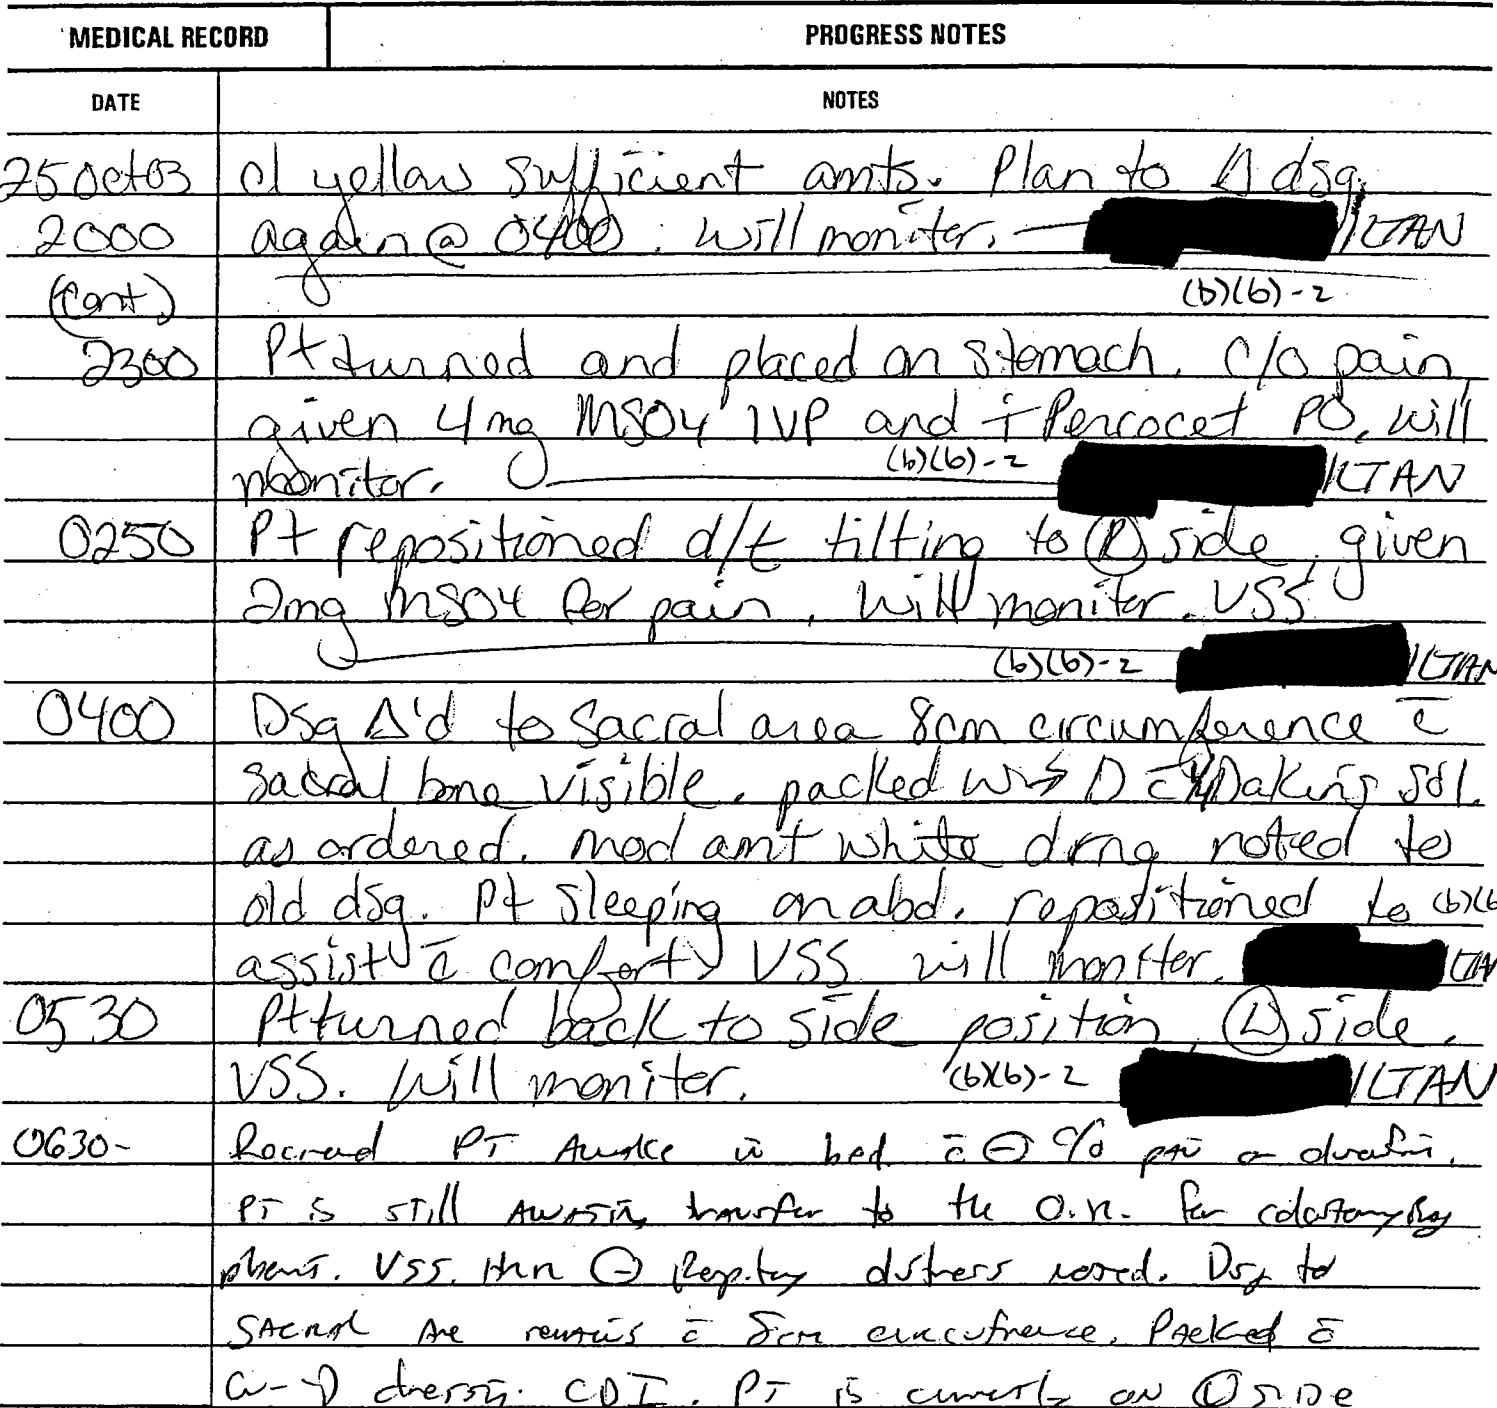 MEDICAL RECORD PROGRESS NOTES
DATE NOTES
25 Oct 03 cl yellow sufficient amts. Plan to Δ dsg
2000 again @ 0400. Will monitor. /LTAN
(cont) (b)(6)-2
2300 Pt turned and placed on stomach. c/o pain,
given 4 mg MSO4 IVP and i Percocet PO. Will
monitor. (b)(6)-2 /LTAN
0250 Pt repositioned d/t tilting to Ⓡ side, given
2mg MSO4 for pain. Will monitor. VSS
(b)(6)-2 /LTAN
0400 Dsg Δ'd to sacral area 8cm circumference c̄
sacral bone visible. packed W→D c̄ Dakins sol.
as ordered. mod amt white drng noted to
old dsg. Pt sleeping on abd. repositioned to (b)(6
assist c̄ comfort VSS will monitor. LTAN
0530 Pt turned back to side position, Ⓛ side.
VSS. Will monitor. (b)(6)-2 /LTAN
0630- PT Awake in bed c̄ ⊖ c/o pain
PT is still awaiting transfer to the O.R. for colostomy
VSS. ⊖ distress noted. Dsg to
SACRAL remains c̄ 8cm Packed c̄
CDI. PT is currently on Ⓛ SIDE